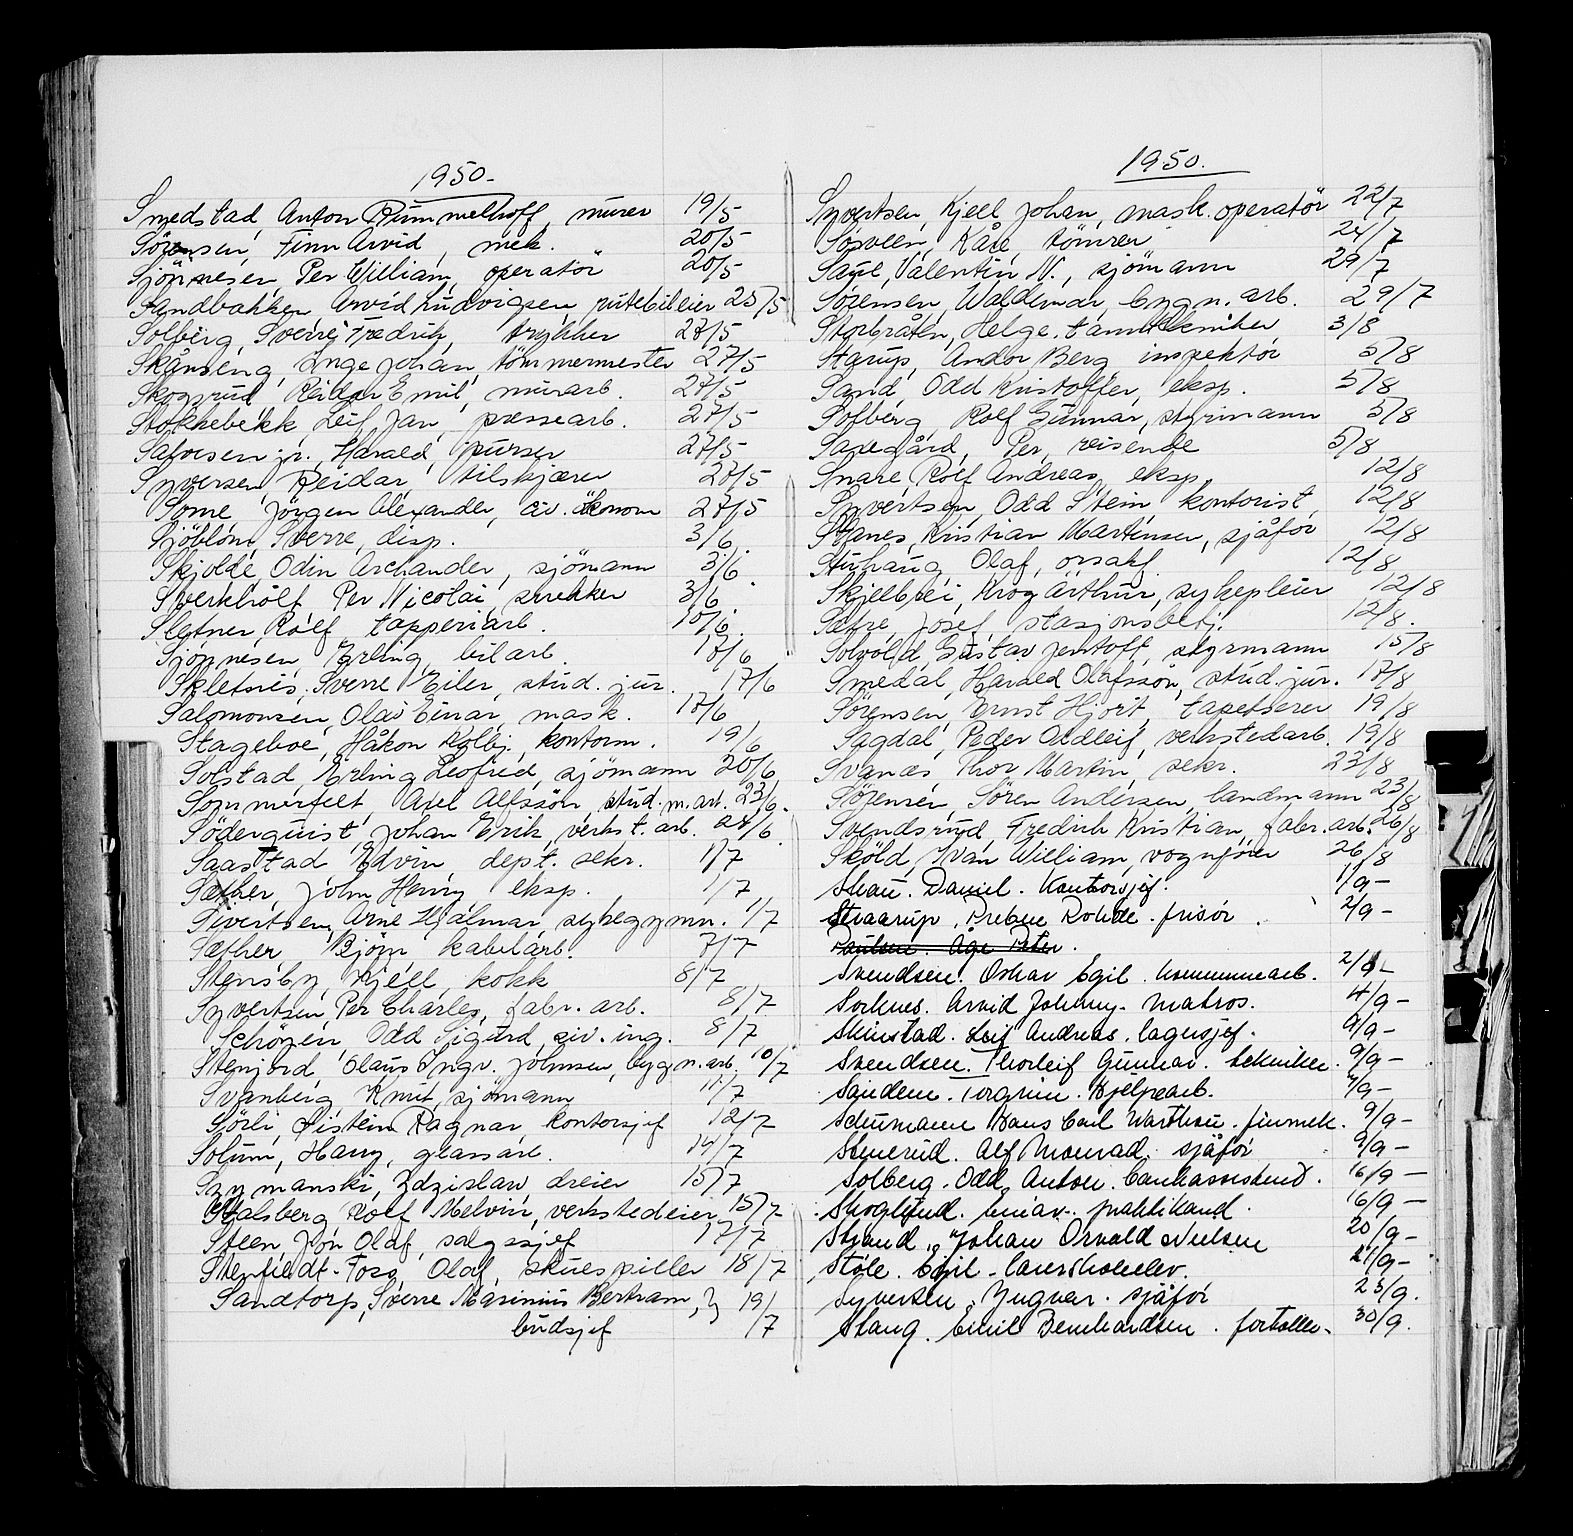 1950.-
Smedstad, Anton Rummelhoff, murer 19/5
Sörensen, Finn Arvid, mek. 20/5
Sjönnesen, Per William, operatör 20/5
Sandbakken, Arvid Ludvigsen, rutebileier 25/5
Solberg, Sverre Fredrik, trykker 27/5
Skånseng, Inge Johan, tömmermester 27/5
Skogrud, Reidar Emil, murarb. 27/5
Stokkebekk, Leif Jan, pressearb. 27/5
Salvesen jr., Harald, purser 27/5
Syversen, Reidar, tilskjærer 27/5
Some, Jörgen Alexander, siv. ökonom 27/5
Sjöblom, Sverre, disp. 3/6.
Skjolde, Odin Archander, sjömann 3/6.
Sverkholt, Per Nicolai, snekker 3/6.
Sletner, Rolf, tapperiarb. 10/6.
Sjönnesen, Erling, bilarb. 17/6
Skletnes, Sverre Eiler, stud. jur. 17/6
Salomonsen, Olav Einar, mask. 17/6
Stageboe, Håkon Kolbj., kontorm. 19/6
Solstad, Erling Leofred, sjömann 20/6
Sommerfelt, Axel Alfssön, stud. m. art. 23/6.
Söderquist, Johan Erik, verkst. arb. 24/6.
Saastad, Edvin, dept. sekr. 1/7
Sæther, John Henry, eksp. 1/7
Sivertsen, Arne Hjalmar, sykegymn. 1/7
Sæther, Björn, kabelarb. 7/7
Stensby, Kjell, kokk 8/7
Syvertsen, Per Charles, fabr. arb. 8/7
Schöyen, Odd Sigurd, siv. ing. 8/7
Stenjord, Olaus Ingv. Johnsen, bygn. arb. 10/7
Svanberg, Knut, sjömann 11/7
Sörli, Öistein Ragnar, kontorsjef 12/7
Solum, Harry, glassarb. 14/7
Szymanski, Zdzislaw, dreier 15/7
Stalsberg, Rolf Melvin, verkstedeier 15/7
Steen, Jon Olaf, salgssjef 17/7
Stenfeldt-Foss, Olaf, skuespiller 18/7
Sandtorp, Sverre Marinius Bertram, } 19/
budsjef /7
1950.
Syvertsen, Kjell Johan, mask. operatör 22/7
Sösveen, Kåre, tömrer 24/7
Saue, Valentin N., sjömann 29/7
Sörensen, Waldemar, bygn. arb. 29/7
Storbråten, Helge, tanntekniker 3/8
Starup, Andor Berg, inspektör 5/8
Sand, Odd Kristoffer, eksp. 5/8
Solberg, Rolf Gunnar, styrmann 5/8
Saxegård, Per, reisende 5/8
Snare, Rolf Andreas, eksp. 12/8
Syvertsen, Odd Stein, kontorist, 12/8
Stanes, Kristian Martinsen, sjåför 12/8
Stuhaug, Olaf, orsakf. 12/8
Skjelbrei, Krog Arthur, sykepleier 12/8
Sætre, Josef, stasjonsbetj. 12/8.
Solvold, Gustav Jentoft, styrmann 15/8
Smedal, Harald Olafssön, stud. jur. 17/8
Sörensen, Ernst Hjort, tapetserer 19/8
Sagdal, Peder Oddleif, verkstedarb. 19/8
Svanæs, Thor Martin, sekr. 23/8
Sörensen, Sören Andersen, landmann 23/8
Svendsrud, Fredrik Kristian, fabr. arb. 26/8
Sköld, Ivan William, vognförer 26/8
Skau. Daniel. Kontorsjef. 1/9-
Straarup, Preben Rohde. frisör. 2/9-
Paulsen. Åge Peter.
Svendsen. Oskar Egil. kommunearb. 2/9-
Sörlnes. Arvid Johnny. Matros. 4/9-
Skinstad. Leif Andreas. lagersjef. 9/9-
Svendsen. Thorleif Gunnar. tekniker. 9/9-
Sandem. Torgrim. Hjelpearb. 9/9-
Schumann Hans Carl Warthou. finmek. 9/9-
Stenerud. Alf Monrad. sjåför 9/9-
Solberg. Odd Anton. bankassistent. 16/9-
Skoglund. Einar. praktikand. 16/9-
Strand, Johan Osvald Nielsen 20/9-
Støle. Egil. lærerskoleelev. 21/9-
Syversen, Yngvar. sjåför 23/9.
Stang. Emil Bernhardsen. fortøller. 30/9.